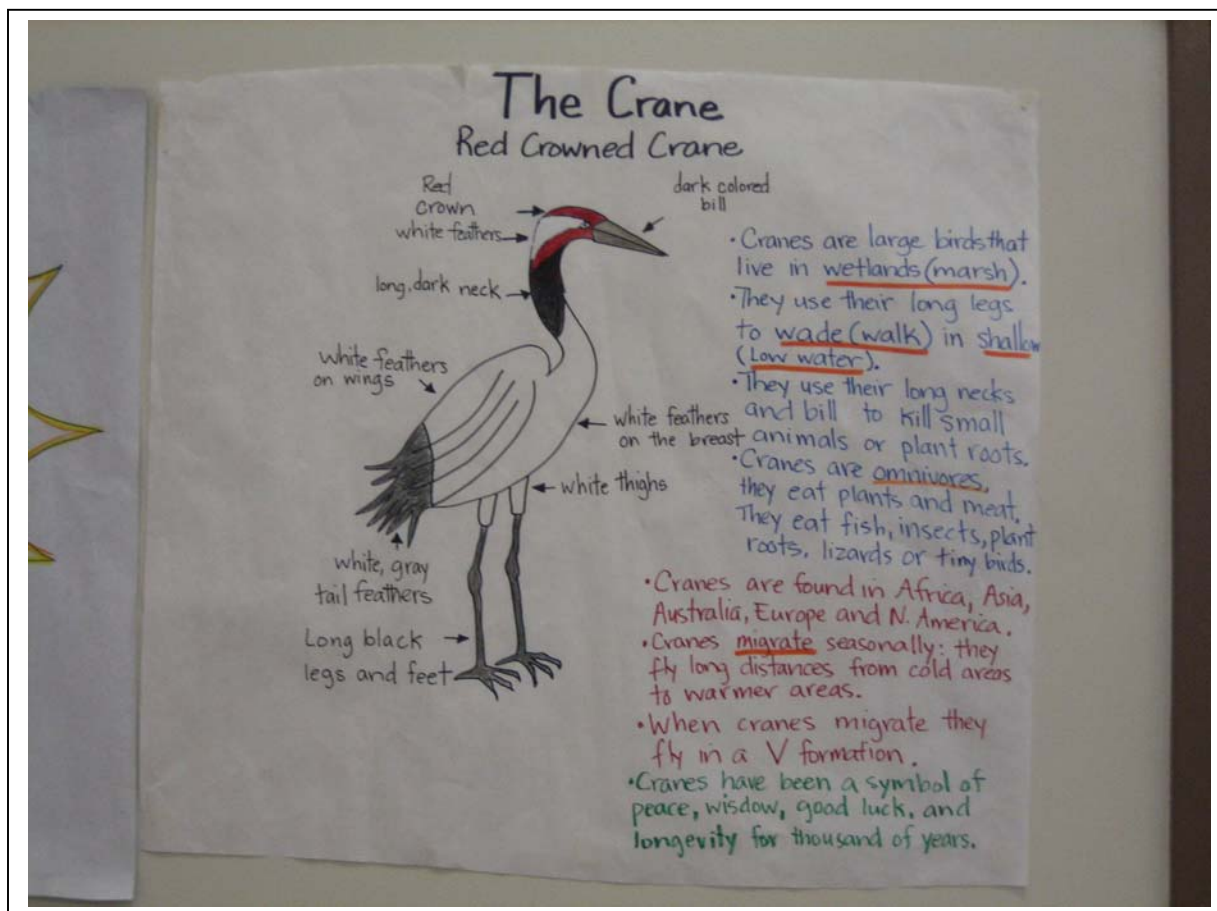 The Crane
Red Crowned Crane
Red
crown
white feathers
dark colored
bill
long, dark neck
white feathers
on wings
white feathers
on the breast
white thighs
white, gray
tail feathers
Long black
legs and feet
•Cranes are large birds that
live in wetlands (marsh).
•They use their long legs
to wade (walk) in shallow
(Low water).
•They use their long necks
and bill to kill small
animals or plant roots.
•Cranes are omnivores,
they eat plants and meat.
They eat fish, insects, plant
roots, lizards or tiny birds.
•Cranes are found in Africa, Asia,
Australia, Europe and N. America.
•Cranes migrate seasonally: they
fly long distances from cold areas
to warmer areas.
•When cranes migrate they
fly in a V formation.
•Cranes have been a symbol of
peace, wisdow, good luck, and
longevity for thousand of years.